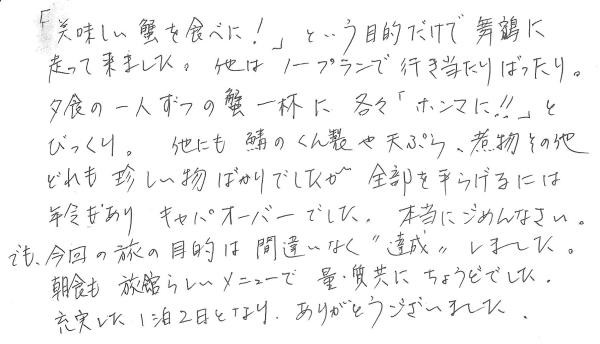 「美味しい蟹を食べに！」という目的だけで舞鶴に
走って来ました。他はノープランで行き当たりばったり。
夕食の一人ずつの蟹一杯に各々「ホンマに!!」と
びっくり。他にも鯖のくん製や天ぷら、煮物その他
どれも珍しい物ばかりでしたが全部を平らげるには
年令もあり キャパオーバーでした。本当にごめんなさい。
でも、今回の旅の目的は間違いなく〝達成〟しました。
朝食も旅館らしいメニューで量・質共にちょうどでした。
充実した1泊2日となり、ありがとうございました。